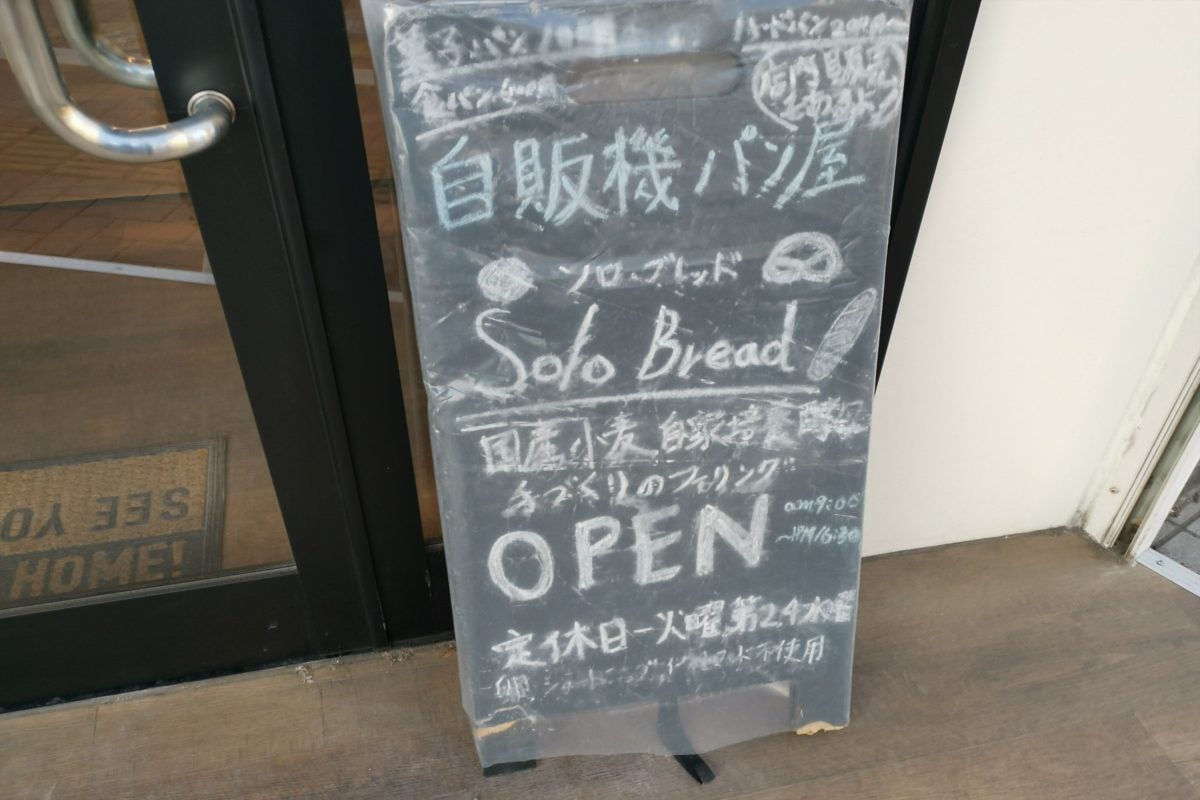 菓子パン
ハードパン
食パン
店内
自販機パン屋
ソロ・ブレッド
Solo Bread
国産小麦 自家培養
手づくりのフィリング
OPEN
am9:00
～PM16:30
定休日ー火曜、第2.4水曜
卵 ショートニング 不使用
SEE YO
HOME!